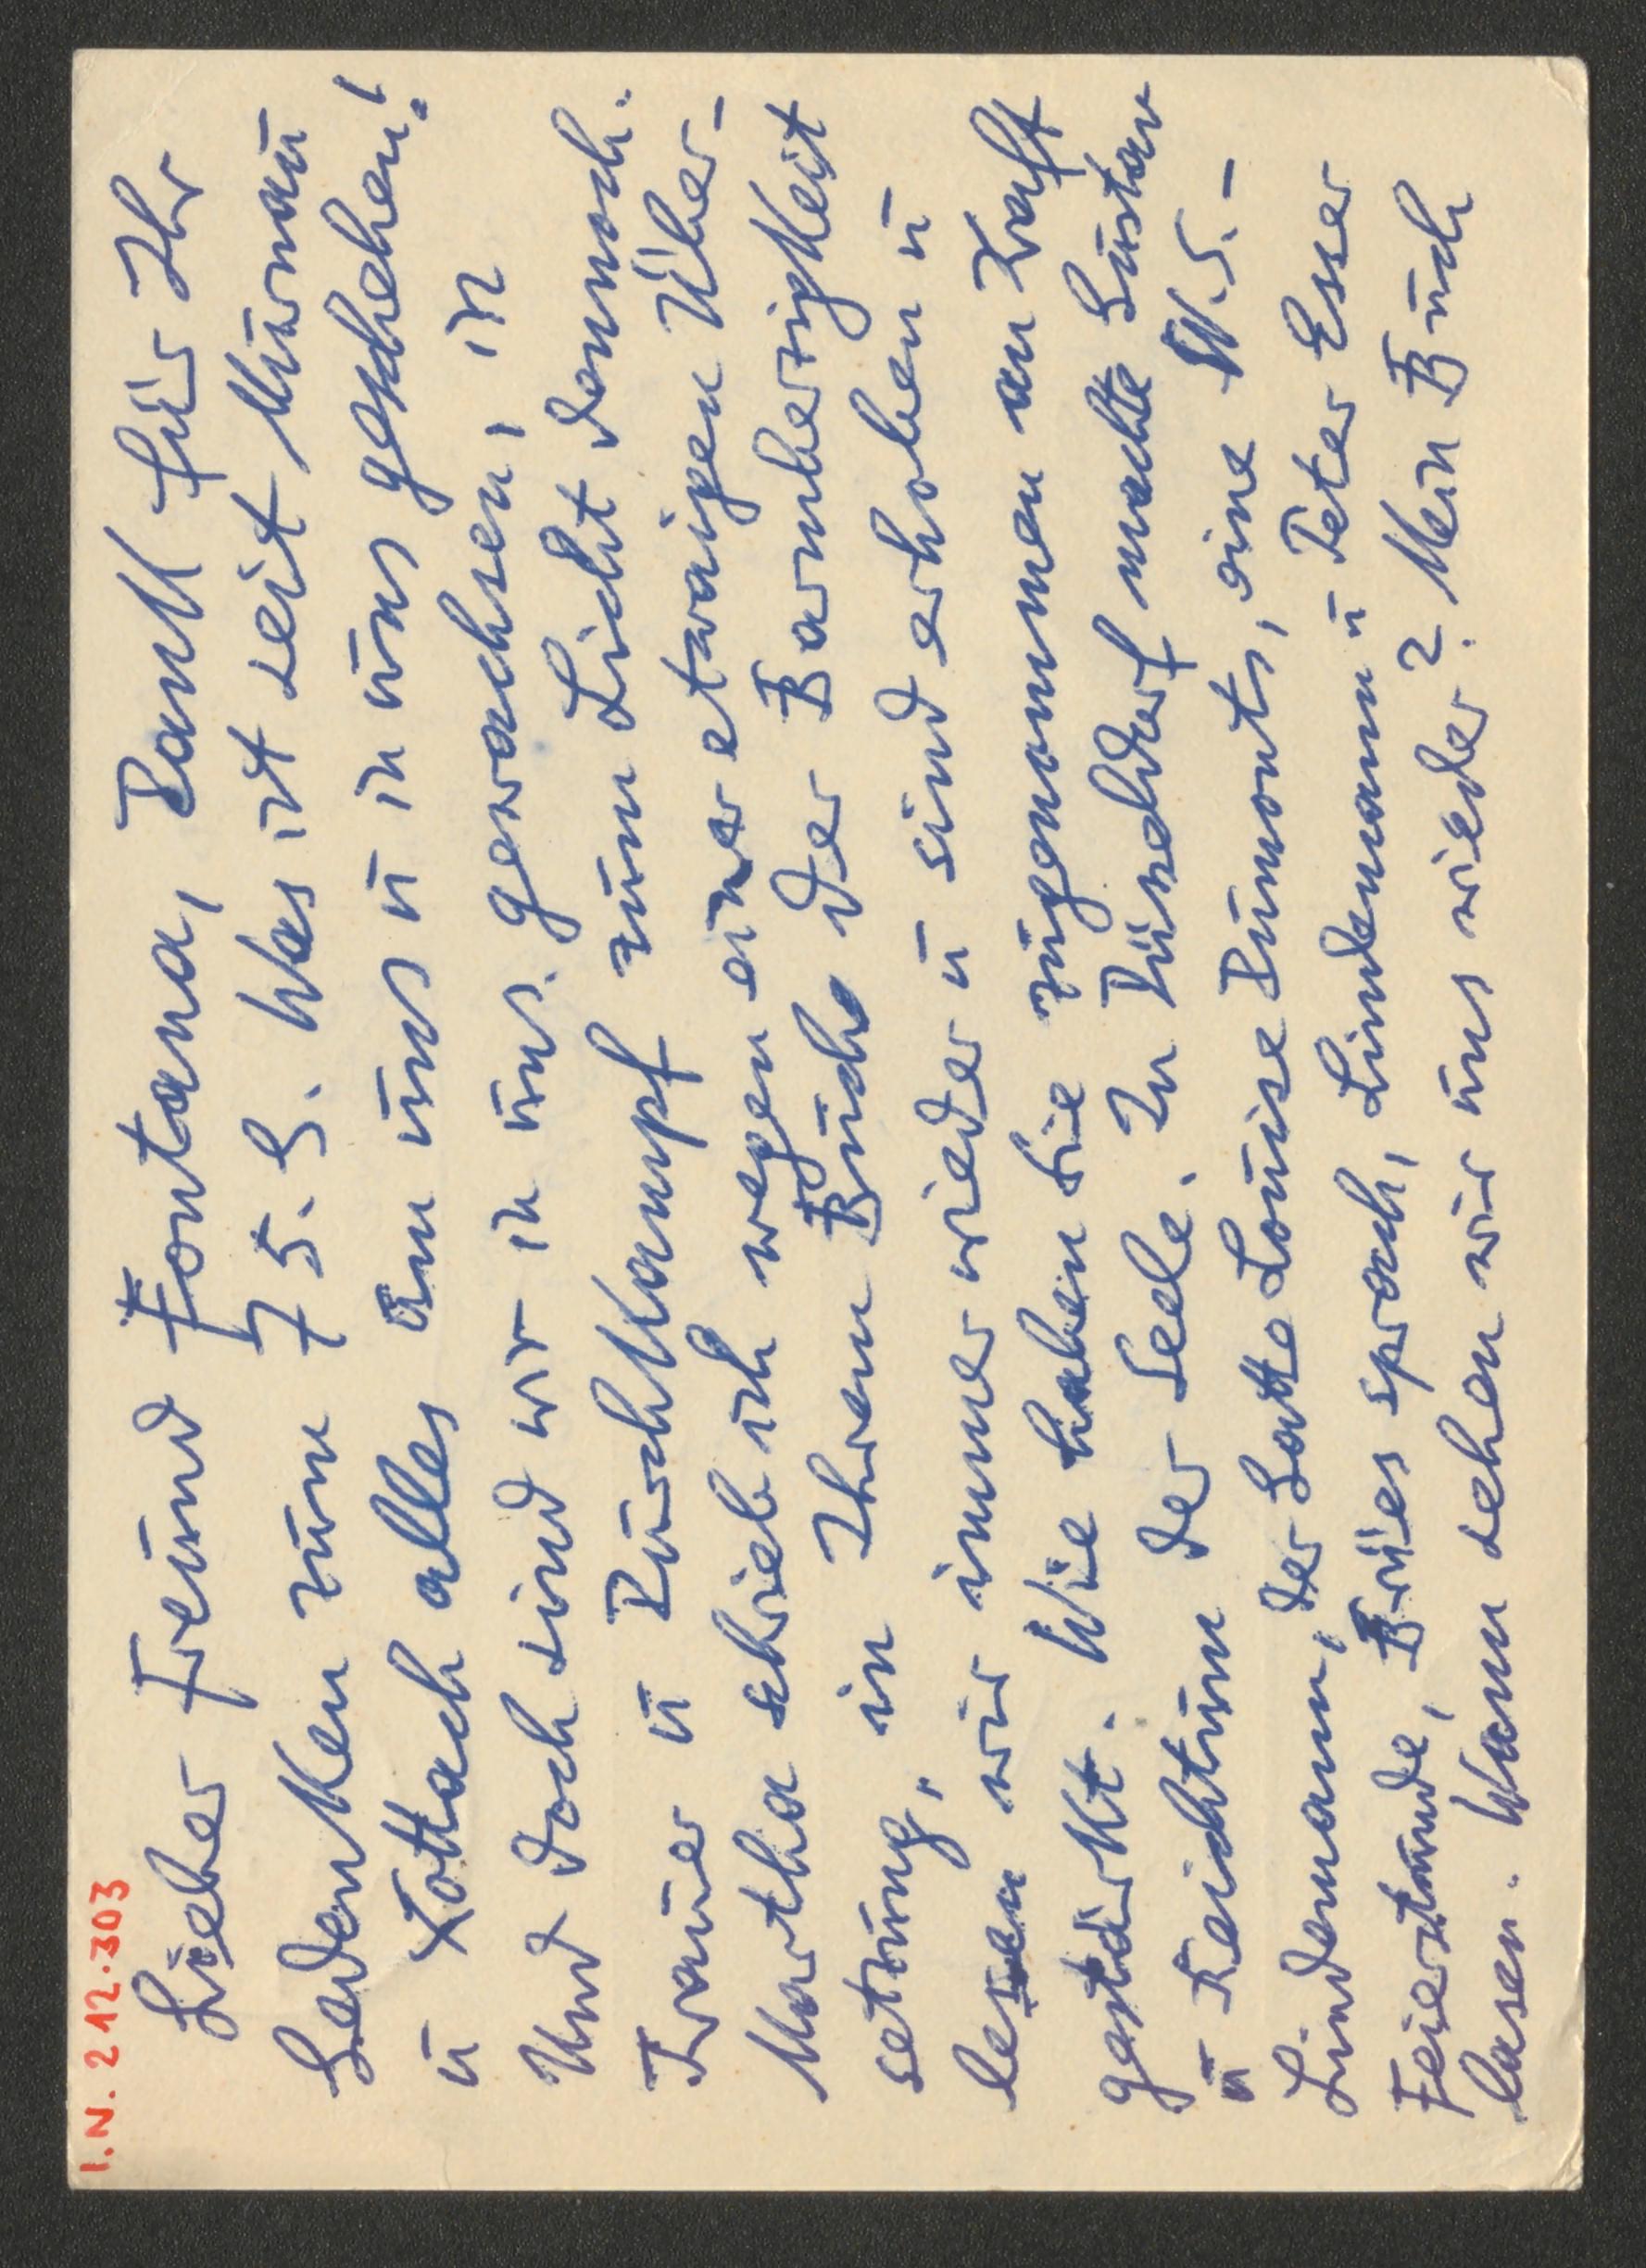 I.N. 212.303
Lieber Freund Fontana, Dank für Ihr
Gedenken zum 75. G. Was ist seit Murnau
u Rottach alles an uns u in uns geschehen!
Und doch sind wir in uns gewachsen, in
Trauer u Durchkampf zum Licht dennoch.
Martha schrieb ich wegen einer etwaigen Über-
setzung, in Ihrem Buche der Barmherzigkeit
lesen wir immer wieder u sind erhoben u
gestärkt. Wie haben Sie zugenommen an Kraft
u Reichtum der Seele. In Düsseldorf machte Gustav
Lindemann, der Gatte Louise Dumonts, eine W.S.-
Feierstunde, Brües sprach, Lindemann u Peter Esser
lasen. Wann sehen wir uns wieder? Mein Buch